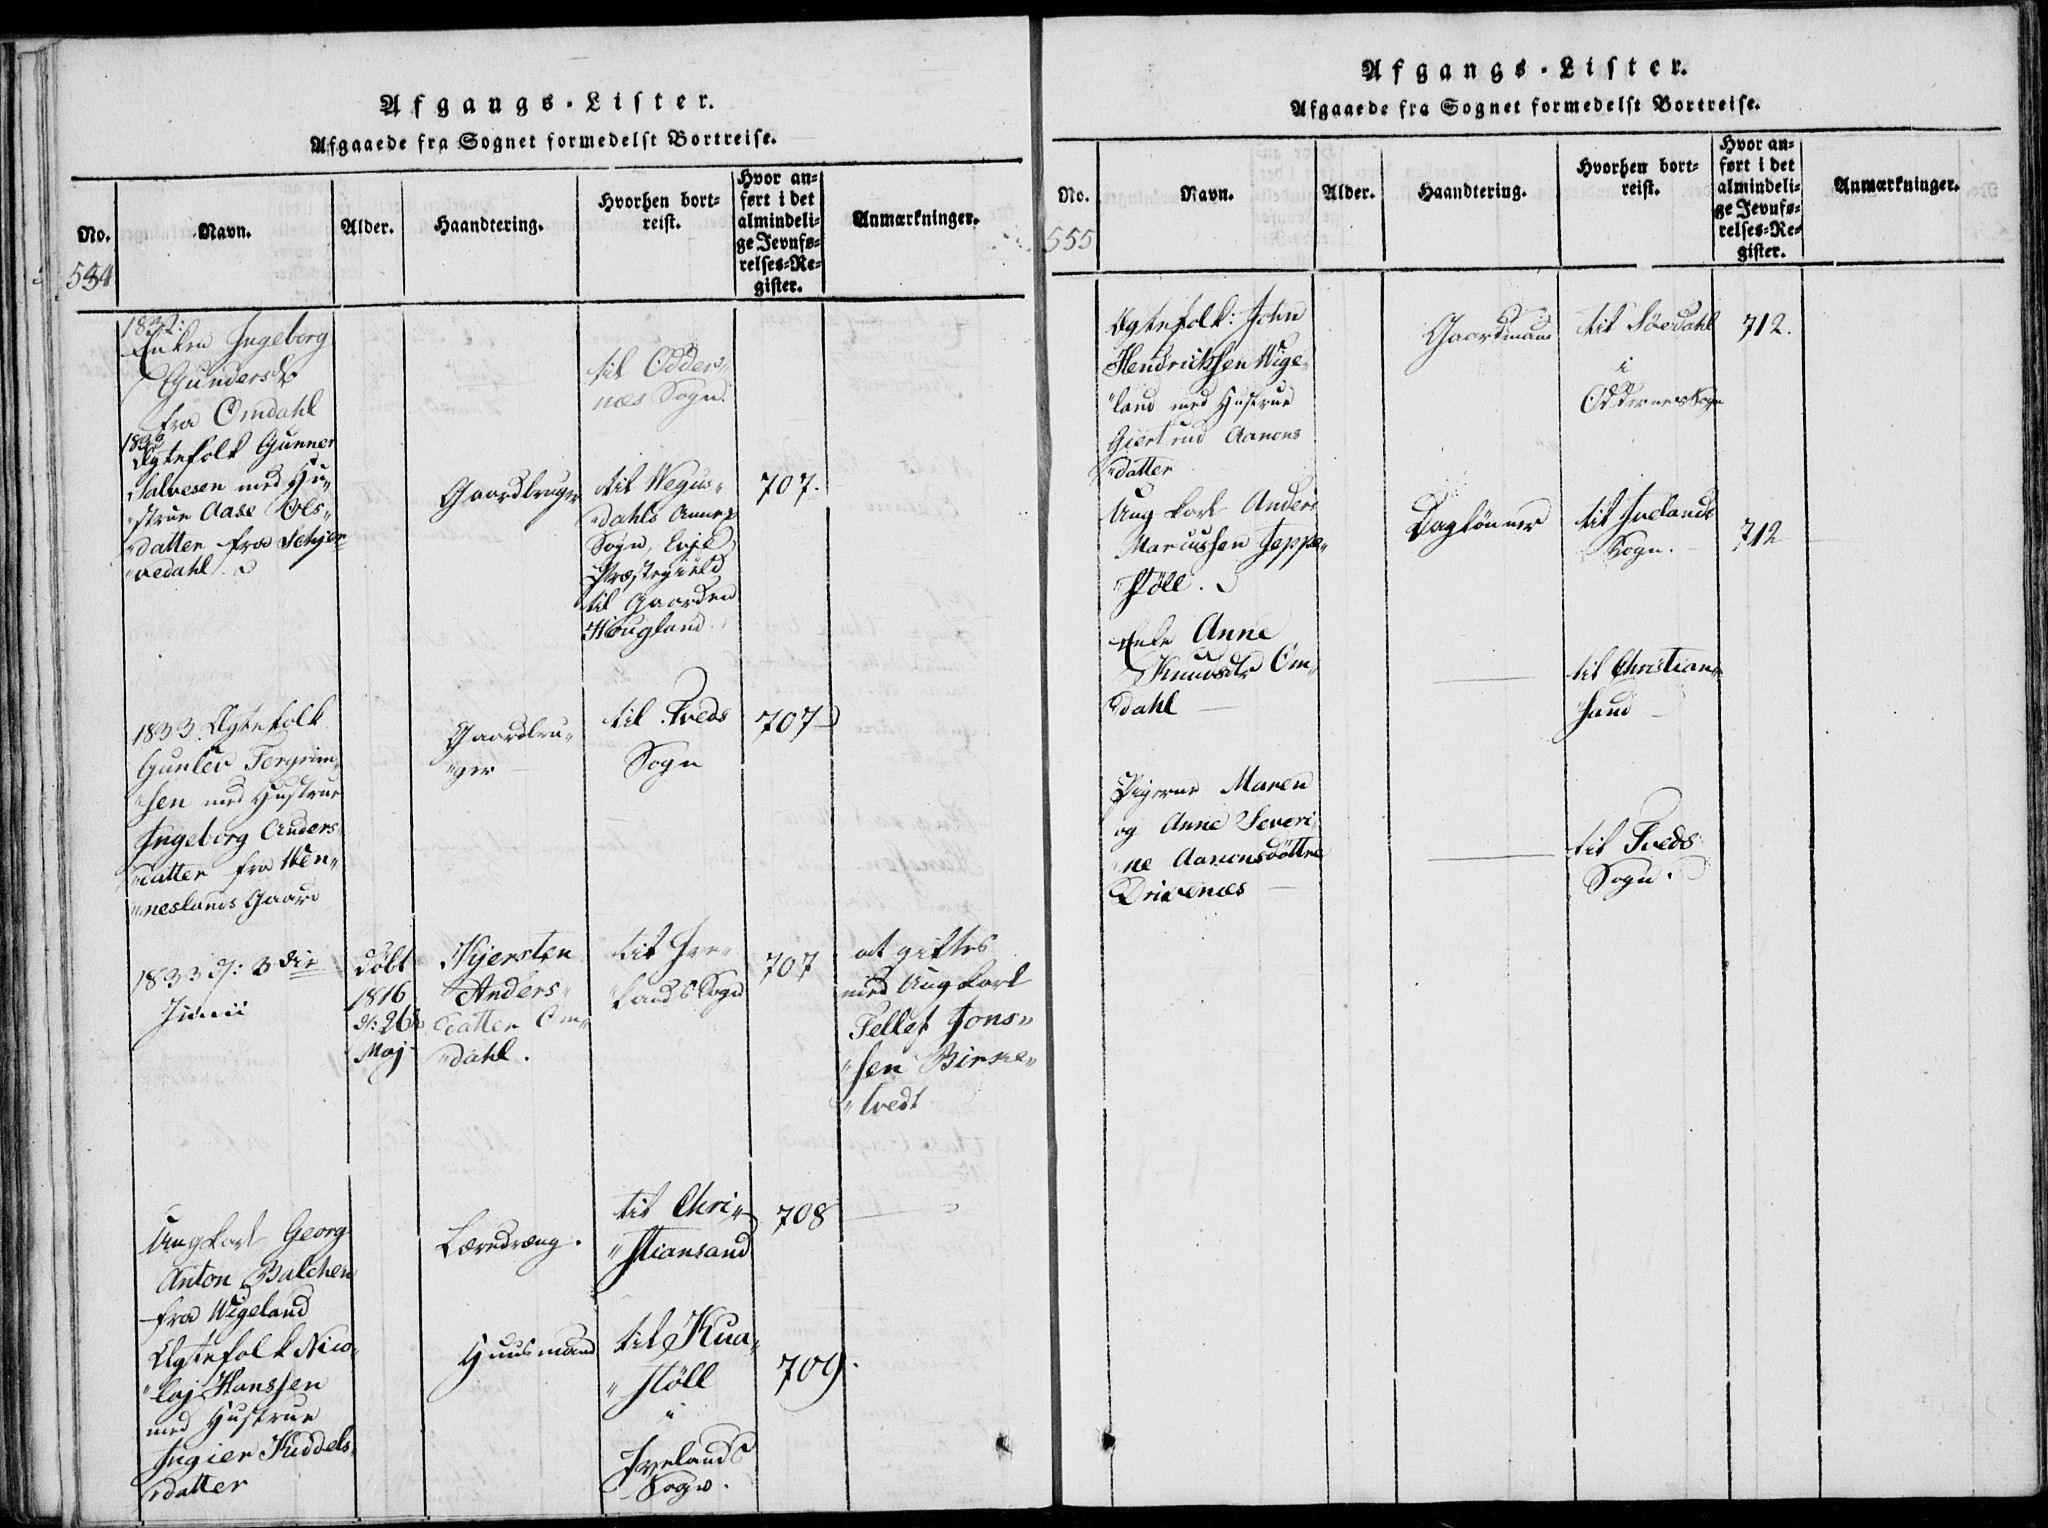 Afgangs-Lister.
Afgaaede fra Sognet formedelst Bortreise.
No.
Navn.
Alder.
Haandtering.
Hvorhen bort=
reist.
Hvor an=
ført i det
almindeli=
ge Jevnfø=
relses=Re=
gister.
Anmærkninger.
534
1832:
Enken Ingeborg
Gundersdr
fra Omdahl
til Odder„
næs Sogn.
1833
Ægtefolk Gunner
Salvesen med Hu„
„strue Aase Ols„
„datter fra Schjer„
„vedahl.
Gaardbruger
til Wegus„
„dahls Annex
Sogn, Evje
Præstegield
til Gaarden
Hougland.
707.
1833. Ægtefolk
Gunlev Tergrim„
„sen med Hustrue
Ingeborg Anders„
„datter fra Wen„
„neslands Gaard
Gaardbru„
„ger
til Tveds
Sogn
707
1833 d: 3die
Junii
døbt
1816
d: 26de
Maj
Kjersten
Anders„
datter Om„
„dahl.
til Ive„
„lands Sogn
707
at giftes
med Ung karl
Tellef Jons„
„sen Birke„
„tvedt
Ungkarl Georg
Anton Balchen
fra Wigeland
Læredræng.
til Chri„
„stiansand
708
Ægtefolk Nico„
„laj Hanssen
med Hustrue
Ingier Kiddels„
„datter
Huusmand
til Kua„
„støll
i
Ivelands
Sogn.
709.
Afgangs-Lister.
Afgaaede fra Sognet formedelst Bortreise.
No.
Navn.
Alder.
Haandtering.
Hvorhen bort=
reist.
Hvor an=
ført i det
almindeli=
ge Jevnfø=
relses=Re=
gister.
Anmærkninger.
555
Ægtefolk: John
Hendrichsen Wige„
„land med Hustrue
Giertrud Aanons
„datter
Gaardmand
til Søedahl
i
Oddernes Sogn
712.
Ung karl Anders
Marcussen Jeppe„
„støll.
Daglønner
til Ivelands
Sogn.
712
Enke Anne
Knudsdr Om„
„dahl
til Christian„
„sand
Pigerne Maren
og Anne Severi„
„ne Aanonsdøttre
Drivenes
til Tveds
Sogn.